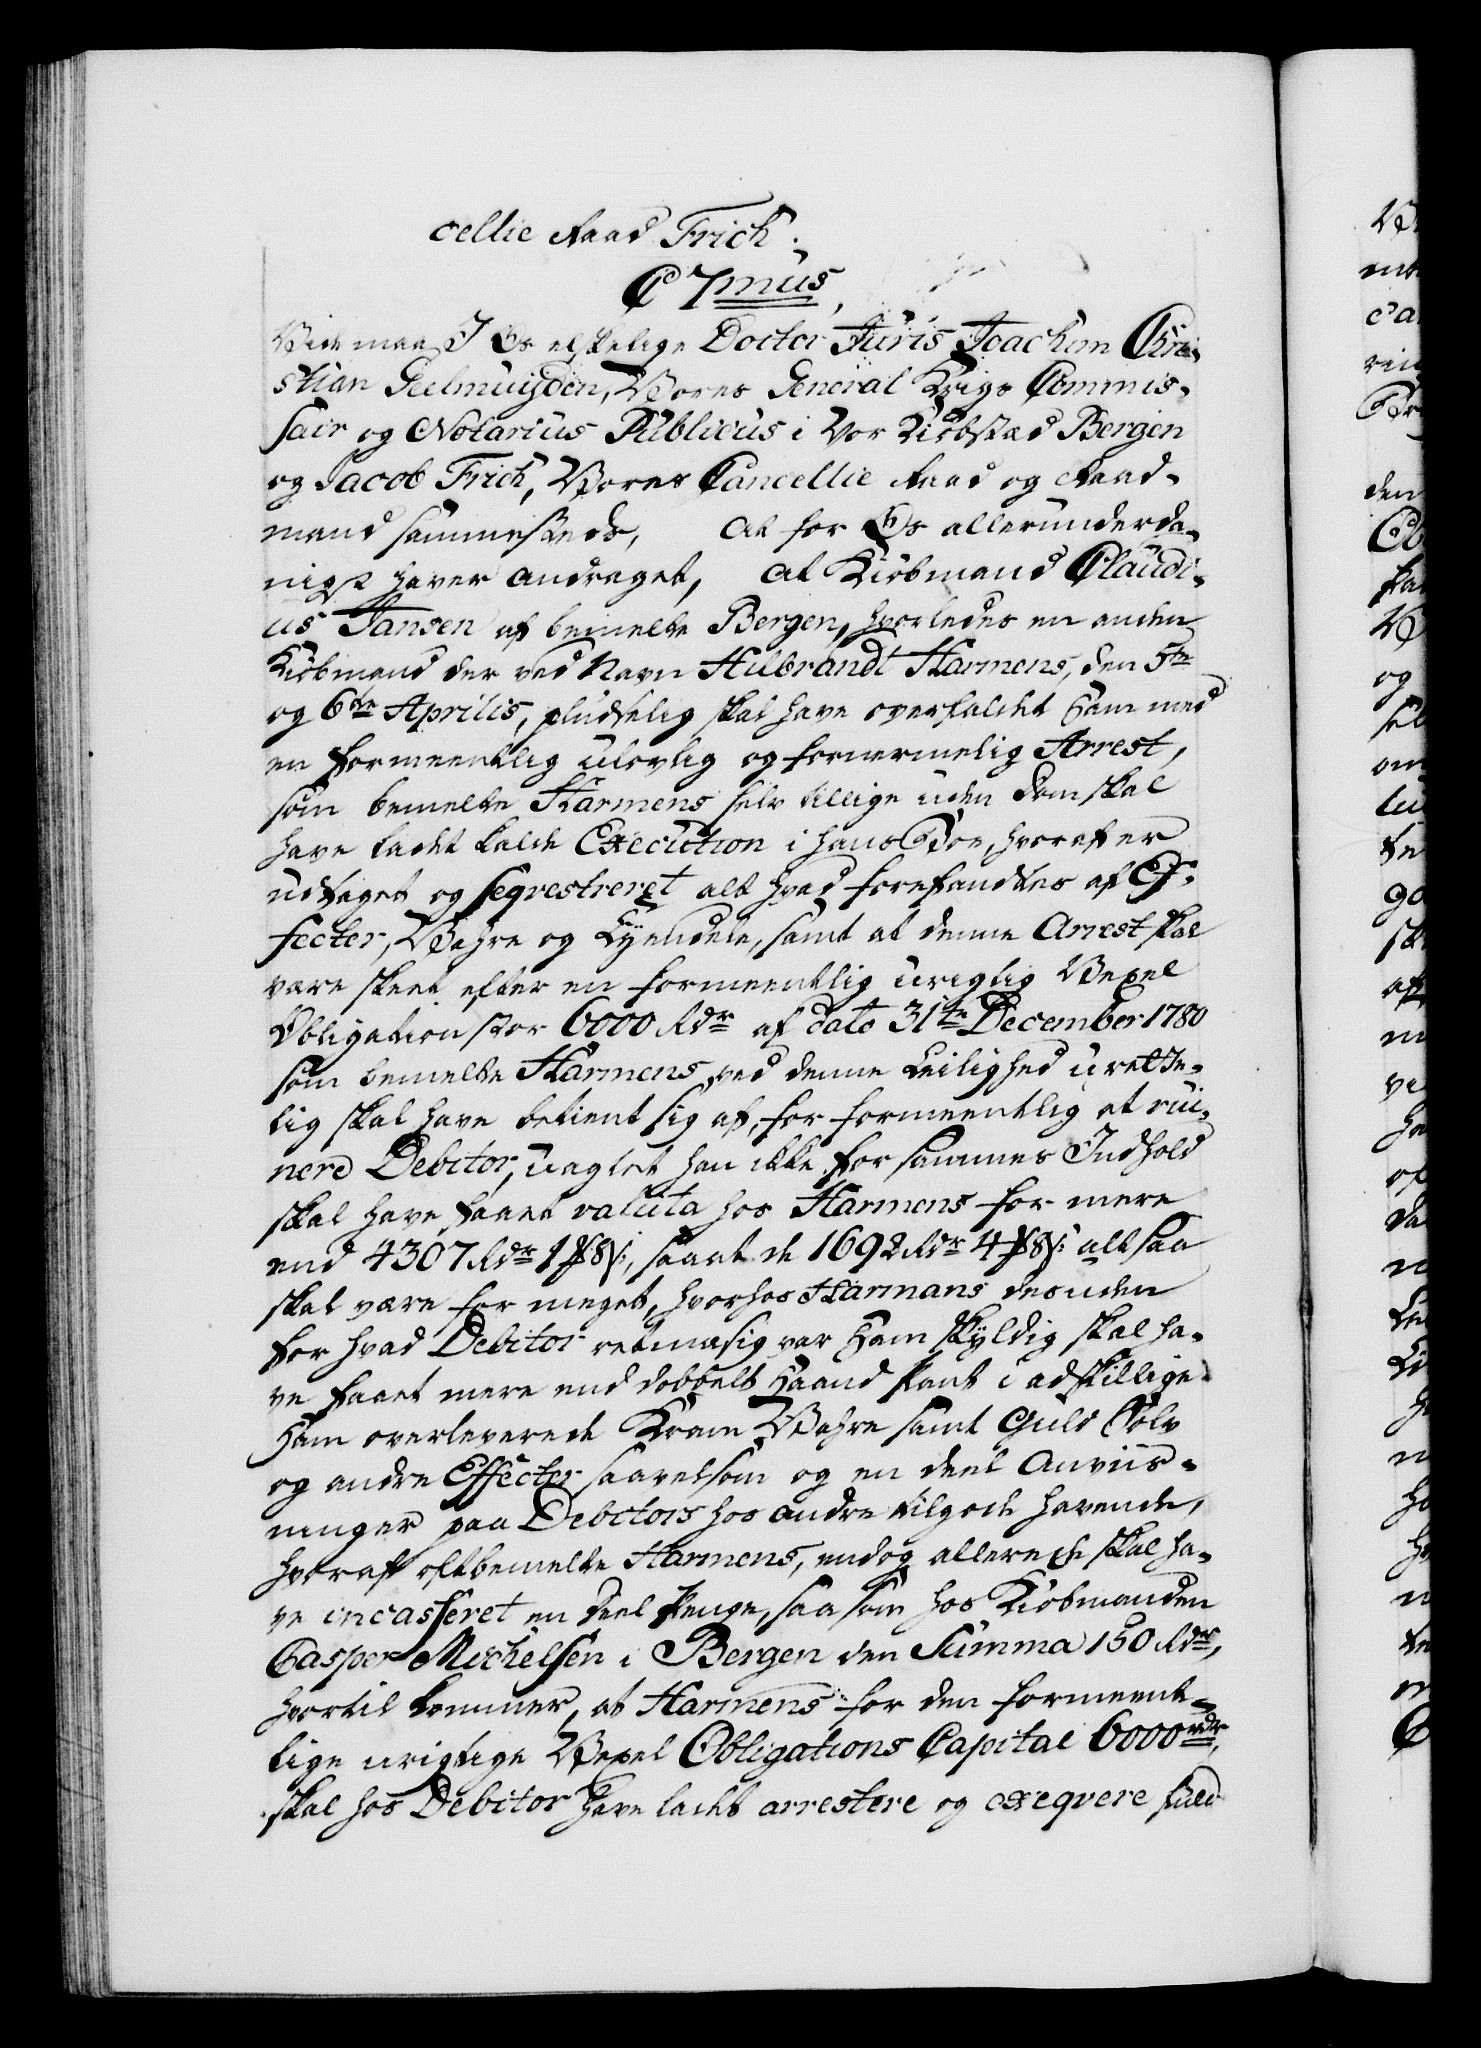 cellie Raad Frich.
C 7mus,
Vide maae I Os elskelige Doctor Juris Joachim Chri-
stian Geelmuijden, Vores General Krigs Commis-
sair og Notarius Publicus i Vor Kiöbstad Bergen
og Jacob Frich, Vores Cancellie Raad og Raad-
mand sammesteds, At for Os allerunderda-
nigst haver andraget, at Kiöbmand Claudi-
us Jansen af bemelte Bergen, hvorledes en anden
Kiöbmand der ved Navn Hilbrandt Harmens, den 5te
og 6te Aprilis, pludselig skal have overfaldet Ham med
en formeentlig ulovlig og fornermelig Arrest,
som bemelte Harmens selv tillige uden Dom skal
have ladet kalde Execution i hans Boe, hvorefter
udtaget og seqrestreret alt hvad forefandtes af Ef-
fecter, Vahre og Eijendele, samt at denne Arrest skal
være skeet efter en formeentlig urigtig Vexel
Obligation stor 6000 Rdr af dato 31te December 1780
som bemelte Harmens ved denne Leilighed urette-
lig skal have betient sig af, for formeentlig at rui-
nere Debitor, uagtet han ikke for sammes Indhold
skal have faaet valuta hos Harmens for mere
end 4307 Rdr 1 # 8 s:, saaat de 1692 Rdr 4 # 8 s: altsaa
skal være for meget, hvorhos Harmans desuden
for hvad Debitor retmæsig var Ham skyldig skal ha-
ve faaet mere end dobbelt Haand Pant i adskillige
Ham overleverede Kram Vahre samt Guld Sölv
og andre Effecter saavelsom og en deel Anviis-
ninger paa Debitors hos andre tilgode havende,
hvoraf oftbemelte Harmens, endog allerede skal ha-
ve incasseret en deel Penge, saasom hos Kiöbmanden
Casper Michelsen i Bergen den Summa 150 Rdr,
hvortil kommer, at Harmens for den formeent-
lige urigtige Vexel Obligations Capital 6000 rdr,
skal hos Debitor have ladet arrestere og exeqvere fuld